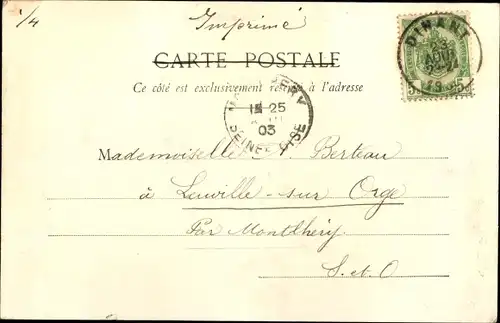 1/4
Imprimé
CARTE POSTALE
Ce côté est exclusivement réservé à l'adresse
DINANT
23
AOUT
5 5
25
03
SEINE ET OISE
Mademoiselle Berteau
à Leuville-sur Orge
Par Montlhéry
S. et O